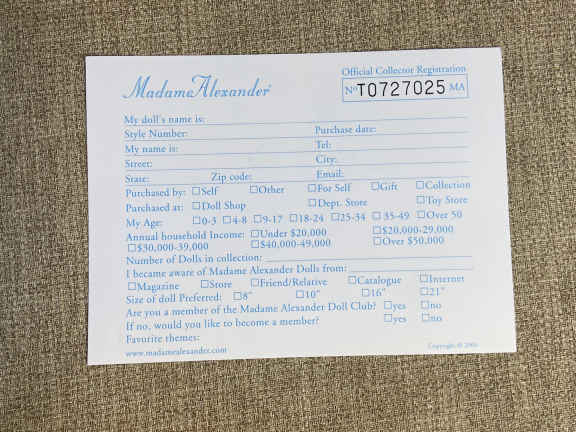 Madame Alexander®
Official Collector Registration
Nº T0727025 MA
My doll's name is:
Style Number: Purchase date:
My name is: Tel:
Street: City:
State: Zip code: Email:
Purchased by: ☐Self ☐Other ☐For Self ☐Gift ☐Collection
Purchased at: ☐Doll Shop ☐Dept. Store ☐Toy Store
My Age: ☐0-3 ☐4-8 ☐9-17 ☐18-24 ☐25-34 ☐35-49 ☐Over 50
Annual household Income: ☐Under $20,000 ☐$20,000-29,000
☐$30,000-39,000 ☐$40,000-49,000 ☐Over $50,000
Number of Dolls in collection:
I became aware of Madame Alexander Dolls from:
☐Magazine ☐Store ☐Friend/Relative ☐Catalogue ☐Internet
Size of doll Preferred: ☐8" ☐10" ☐16" ☐21"
Are you a member of the Madame Alexander Doll Club? ☐yes ☐no
If no, would you like to become a member? ☐yes ☐no
Favorite themes:
www.madamealexander.com
Copyright, ©